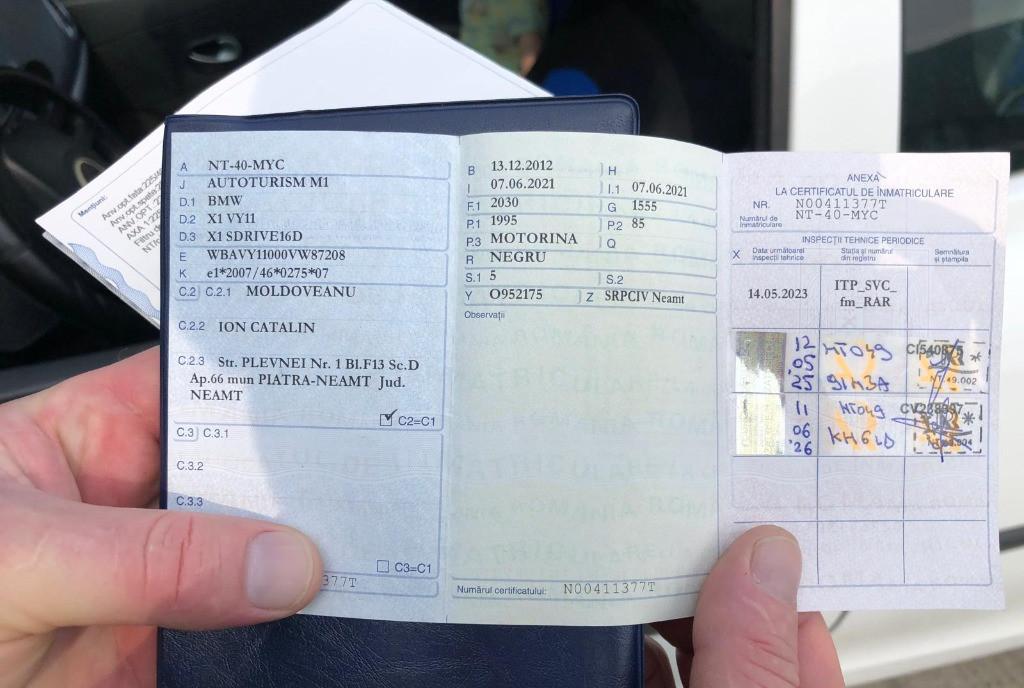 Mențiuni:
Anv.opt.fata:225/4
Anv.opt.spate:2
ANV OPT
A NT-40-MYC
J AUTOTURISM M1
D.1 BMW
D.2 X1 VY11
D.3 X1 SDRIVE16D
E WBAVY11000VW87208
K e1*2007/46*0275*07
C.2 C.2.1 MOLDOVEANU
C.2.2 ION CATALIN
C.2.3 Str. PLEVNEI Nr. 1 Bl.F13 Sc.D
Ap.66 mun PIATRA-NEAMT Jud.
NEAMT
C2=C1
C.3 C.3.1
C.3.2
C.3.3
C3=C1
377T
B 13.12.2012 H
I 07.06.2021 I.1 07.06.2021
F.1 2030 G 1555
P.1 1995 P.2 85
P.3 MOTORINA Q
R NEGRU
S.1 5 S.2
Y O952175 Z SRPCIV Neamt
Observații
Numărul certificatului: N00411377T
ANEXA
LA CERTIFICATUL DE ÎNMATRICULARE
NR. N00411377T
Numărul de înmatriculare NT-40-MYC
INSPECȚII TEHNICE PERIODICE
X Data următoarei inspecții tehnice Stația și numărul din registru Semnătura și ștampila
14.05.2023 ITP_SVC_
fm_RAR
12 NT049 CI540875
05
25
NT.49.002
11 NT049
06
'26